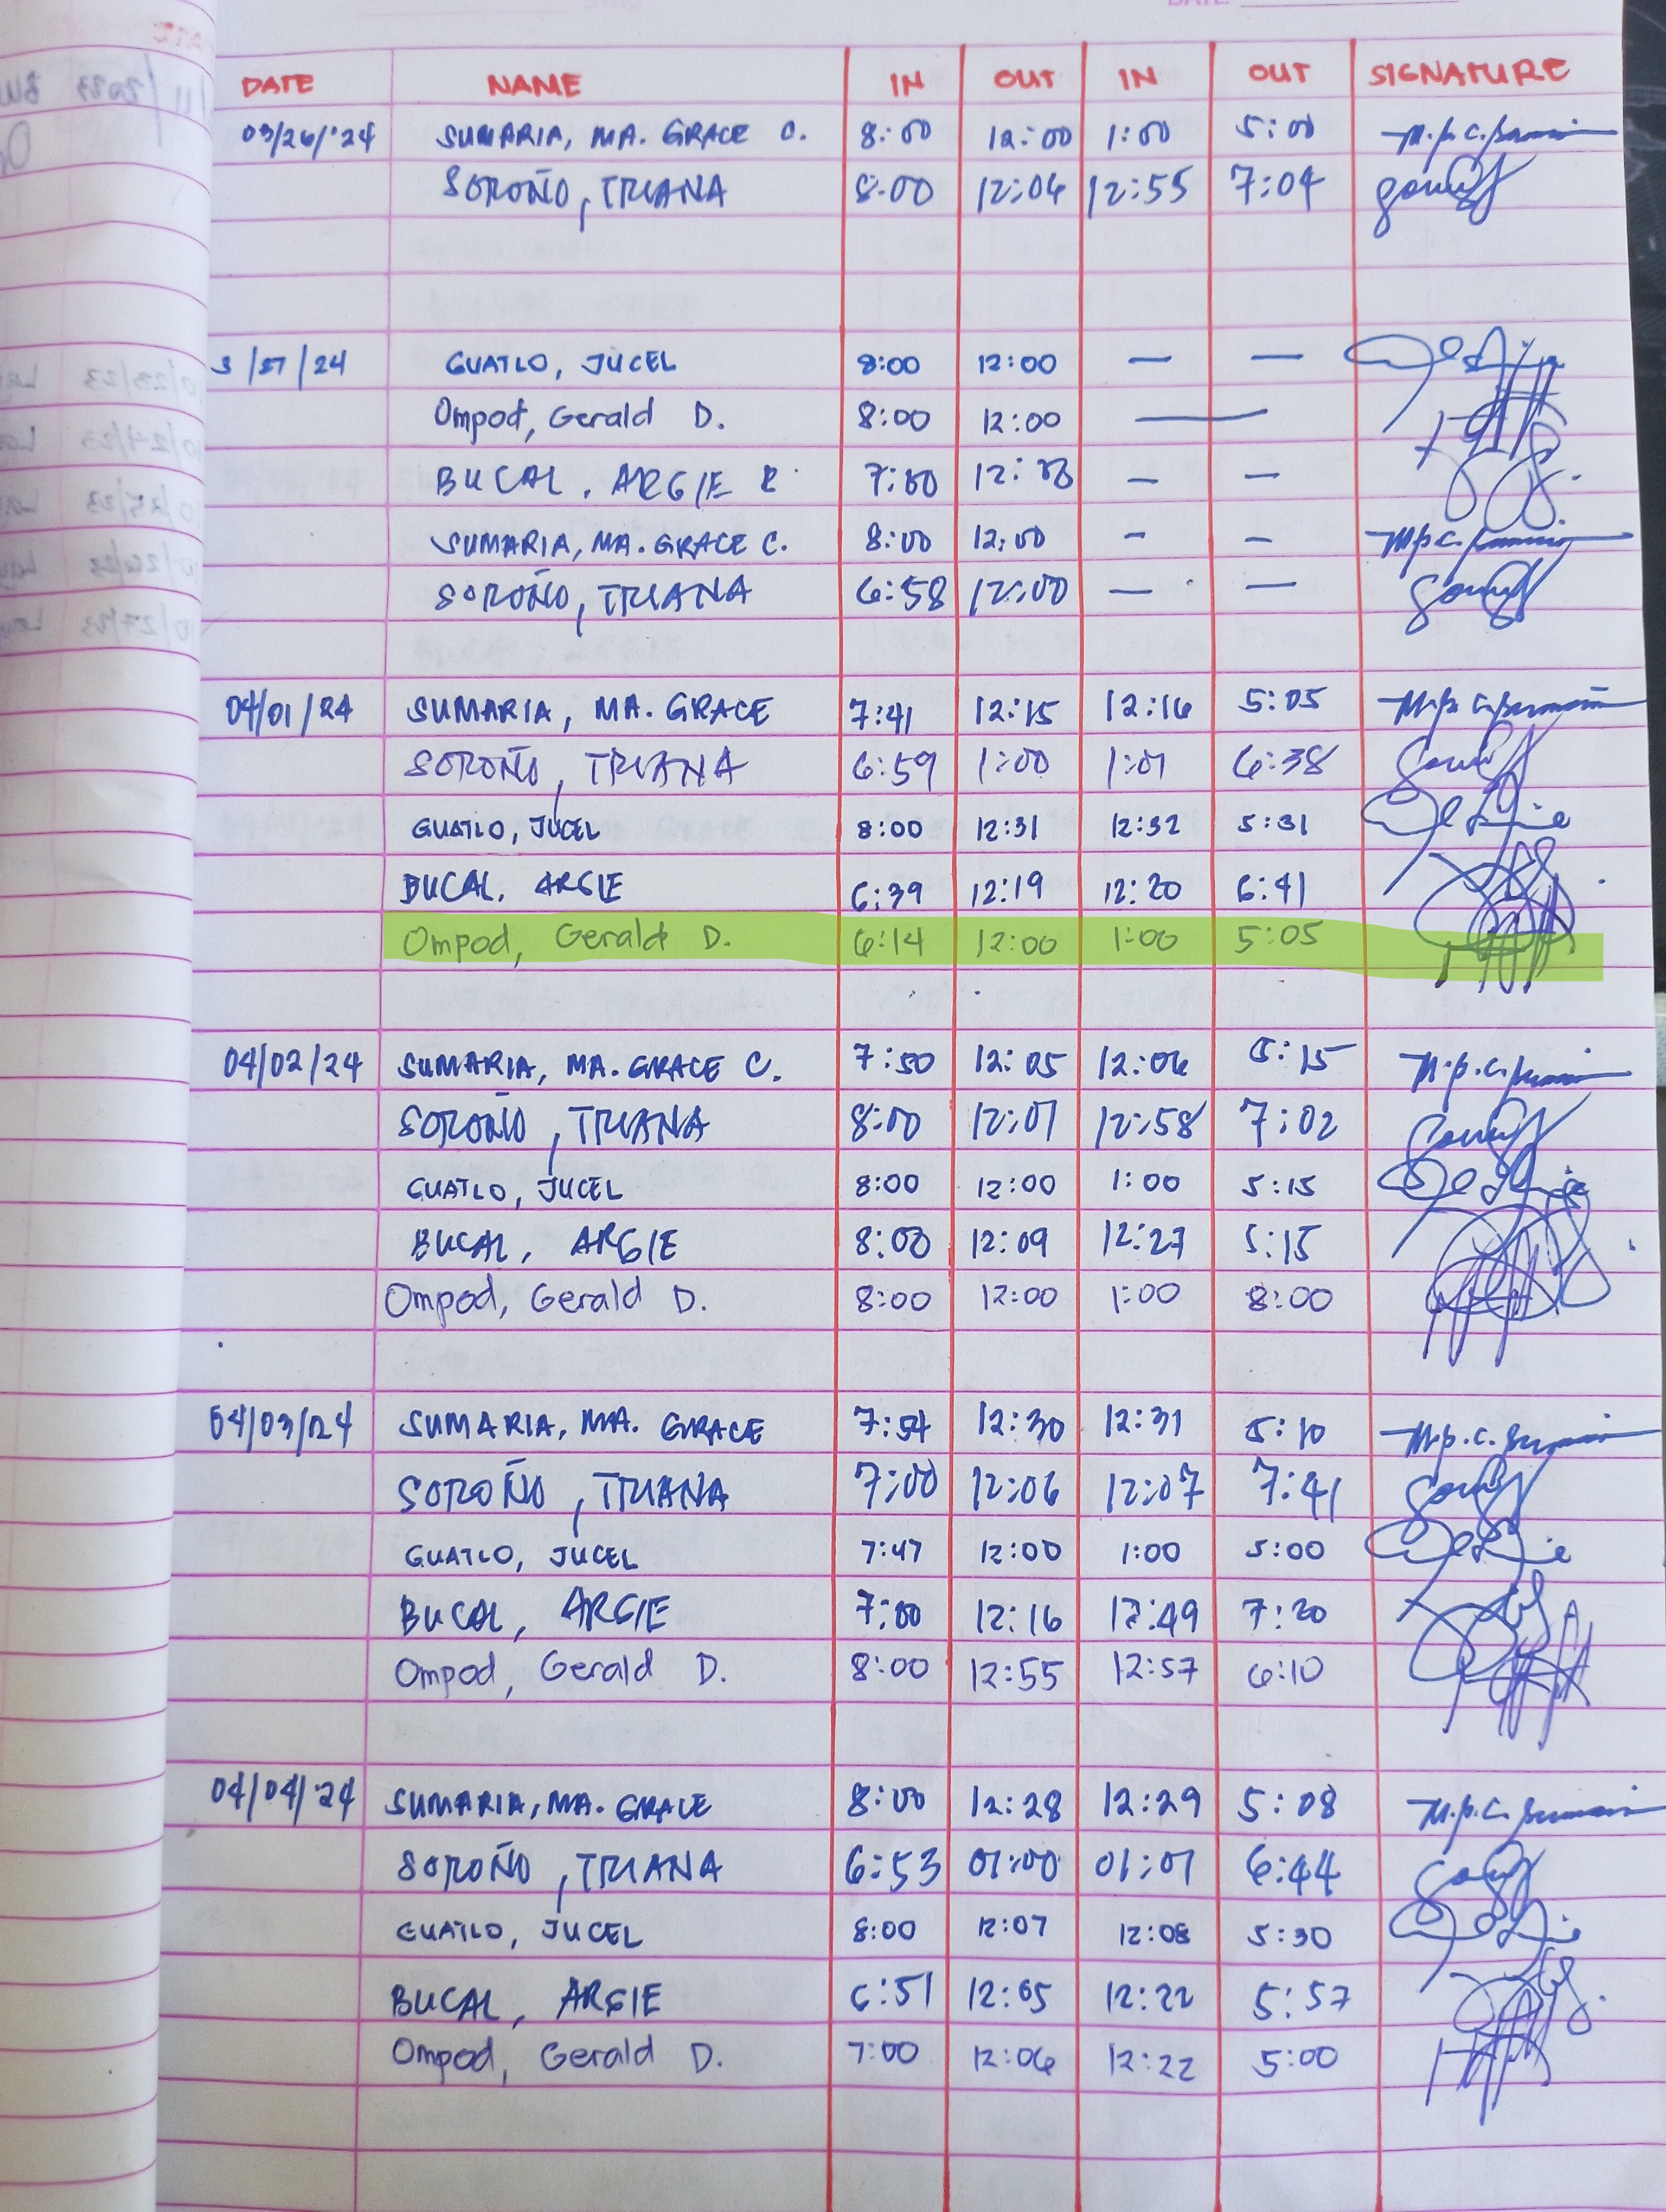 DATE NAME IN OUT IN OUT SIGNATURE
03/26/'24 SUMARIA, MA. GRACE C. 8:00 12:00 1:00 5:00
SOROÑO, TRIANA 8:00 12:06 12:55 7:04
3/27/24 GUATLO, JUCEL 8:00 12:00 — —
Ompod, Gerald D. 8:00 12:00 —
BUCAL, ARGIE R. 7:00 — —
SUMARIA, MA. GRACE C. 8:00 12:00 - -
SOROÑO, TRIANA 6:58 12:00 — —
04/01/24 SUMARIA, MA. GRACE 7:41 12:15 12:16 5:05
SOROÑO, TRIANA 6:59 1:00 1:01 6:38
GUATLO, JUCEL 8:00 12:31 12:32 5:31
BUCAL, ARGIE 6:39 12:19 12:20 6:41
Ompod, Gerald D. 6:14 12:00 1:00 5:05
04/02/24 SUMARIA, MA. GRACE C. 7:50 12:05 12:06 5:15
SOROÑO, TRIANA 8:00 12:01 12:58 7:02
GUATLO, JUCEL 8:00 12:00 1:00 5:15
BUCAL, ARGIE 8:00 12:09 12:27 5:15
Ompod, Gerald D. 8:00 12:00 1:00 8:00
04/03/24 SUMARIA, MA. GRACE 7:54 12:30 12:31 5:10
SOROÑO, TRIANA 7:00 12:06 12:07 7:41
GUATLO, JUCEL 7:47 12:00 1:00 5:00
BUCAL, ARGIE 7:00 12:16 12:49 7:20
Ompod, Gerald D. 8:00 12:55 12:57 6:10
04/04/'24 SUMARIA, MA. GRACE 8:00 12:28 12:29 5:08
SOROÑO, TRIANA 6:53 01:00 01:01 6:44
GUATLO, JUCEL 8:00 12:07 12:08 5:30
BUCAL, ARGIE 6:51 12:05 12:22 5:57
Ompod, Gerald D. 7:00 12:06 12:22 5:00